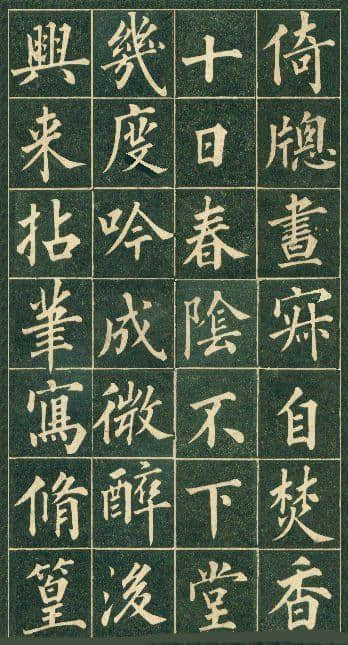 倚牕晝寐自焚香
十日春陰不下堂
幾度吟成微醉後
興来拈筆寫脩篁